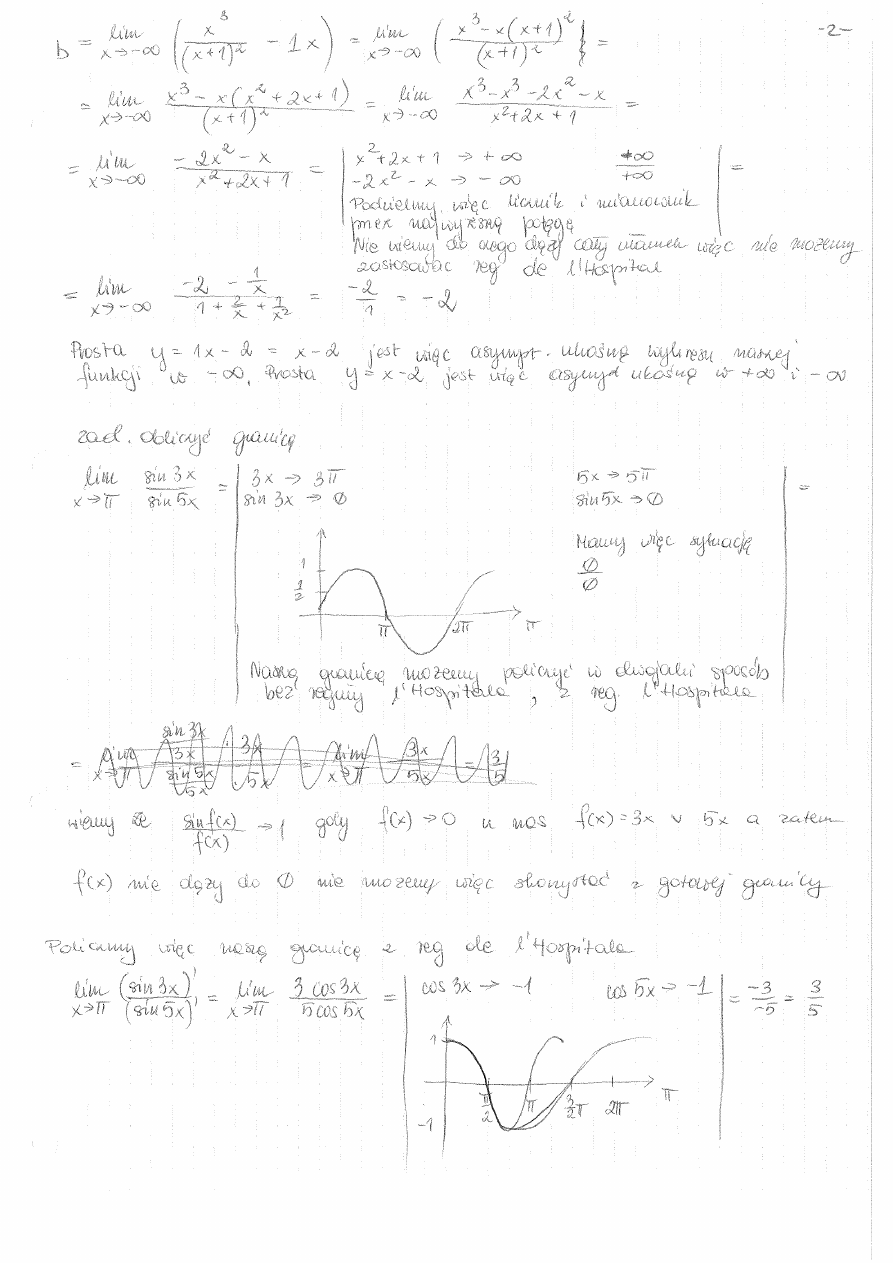 -2-
b = lim x→-∞ (x³/(x+1)² - 1x) = lim x→-∞ (x³-x(x+1)²/(x+1)²) =
= lim x→-∞ x³-x(x²+2x+1)/(x+1)² = lim x→-∞ x³-x³-2x²-x/x²+2x+1 =
= lim x→-∞ -2x²-x/x²+2x+1 = | x²+2x+1 → +∞ +∞/+∞ | =
-2x²-x → -∞
Podzielmy więc licznik i mianownik
przez najwyższą potęgę
Nie wiemy do czego dąży cały ułamek więc nie możemy
zastosować reg de l'Hospital
= lim x→-∞ -2 - 1/x / 1 + 2/x + 1/x² = -2/1 = -2
Prosta y = 1x-2 = x-2 jest więc asympt. ukośną wykresu naszej
funkcji w -∞. Prosta y = x-2 jest więc asympt ukośną w +∞ i -∞
zad. obliczyć granicę
lim x→π sin 3x/sin 5x = | 3x → 3π 5x → 5π | =
sin 3x → 0 sin 5x → 0
Mamy więc sytuację
0/0
1
1/2
π 2π π
Naszą granicę możemy policzyć w dwojaki sposób
bez reguły l'Hospitala, z reg. l'Hospitala
= lim x→π sin 3x/3x · 3x / sin 5x/5x · 5x = lim x→π 3x/5x = 3/5
wiemy że sin f(x)/f(x) → 1 gdy f(x) → 0 u nas f(x) = 3x v 5x a zatem
f(x) nie dąży do 0 nie możemy więc skorzystać z gotowej granicy
Policzmy więc naszą granicę z reg de l'Hospitala
lim x→π (sin 3x)'/(sin 5x)' = lim x→π 3 cos 3x/5 cos 5x = | cos 3x → -1 cos 5x → -1 | = -3/-5 = 3/5
1
π/2 π 3/2π 2π π
-1